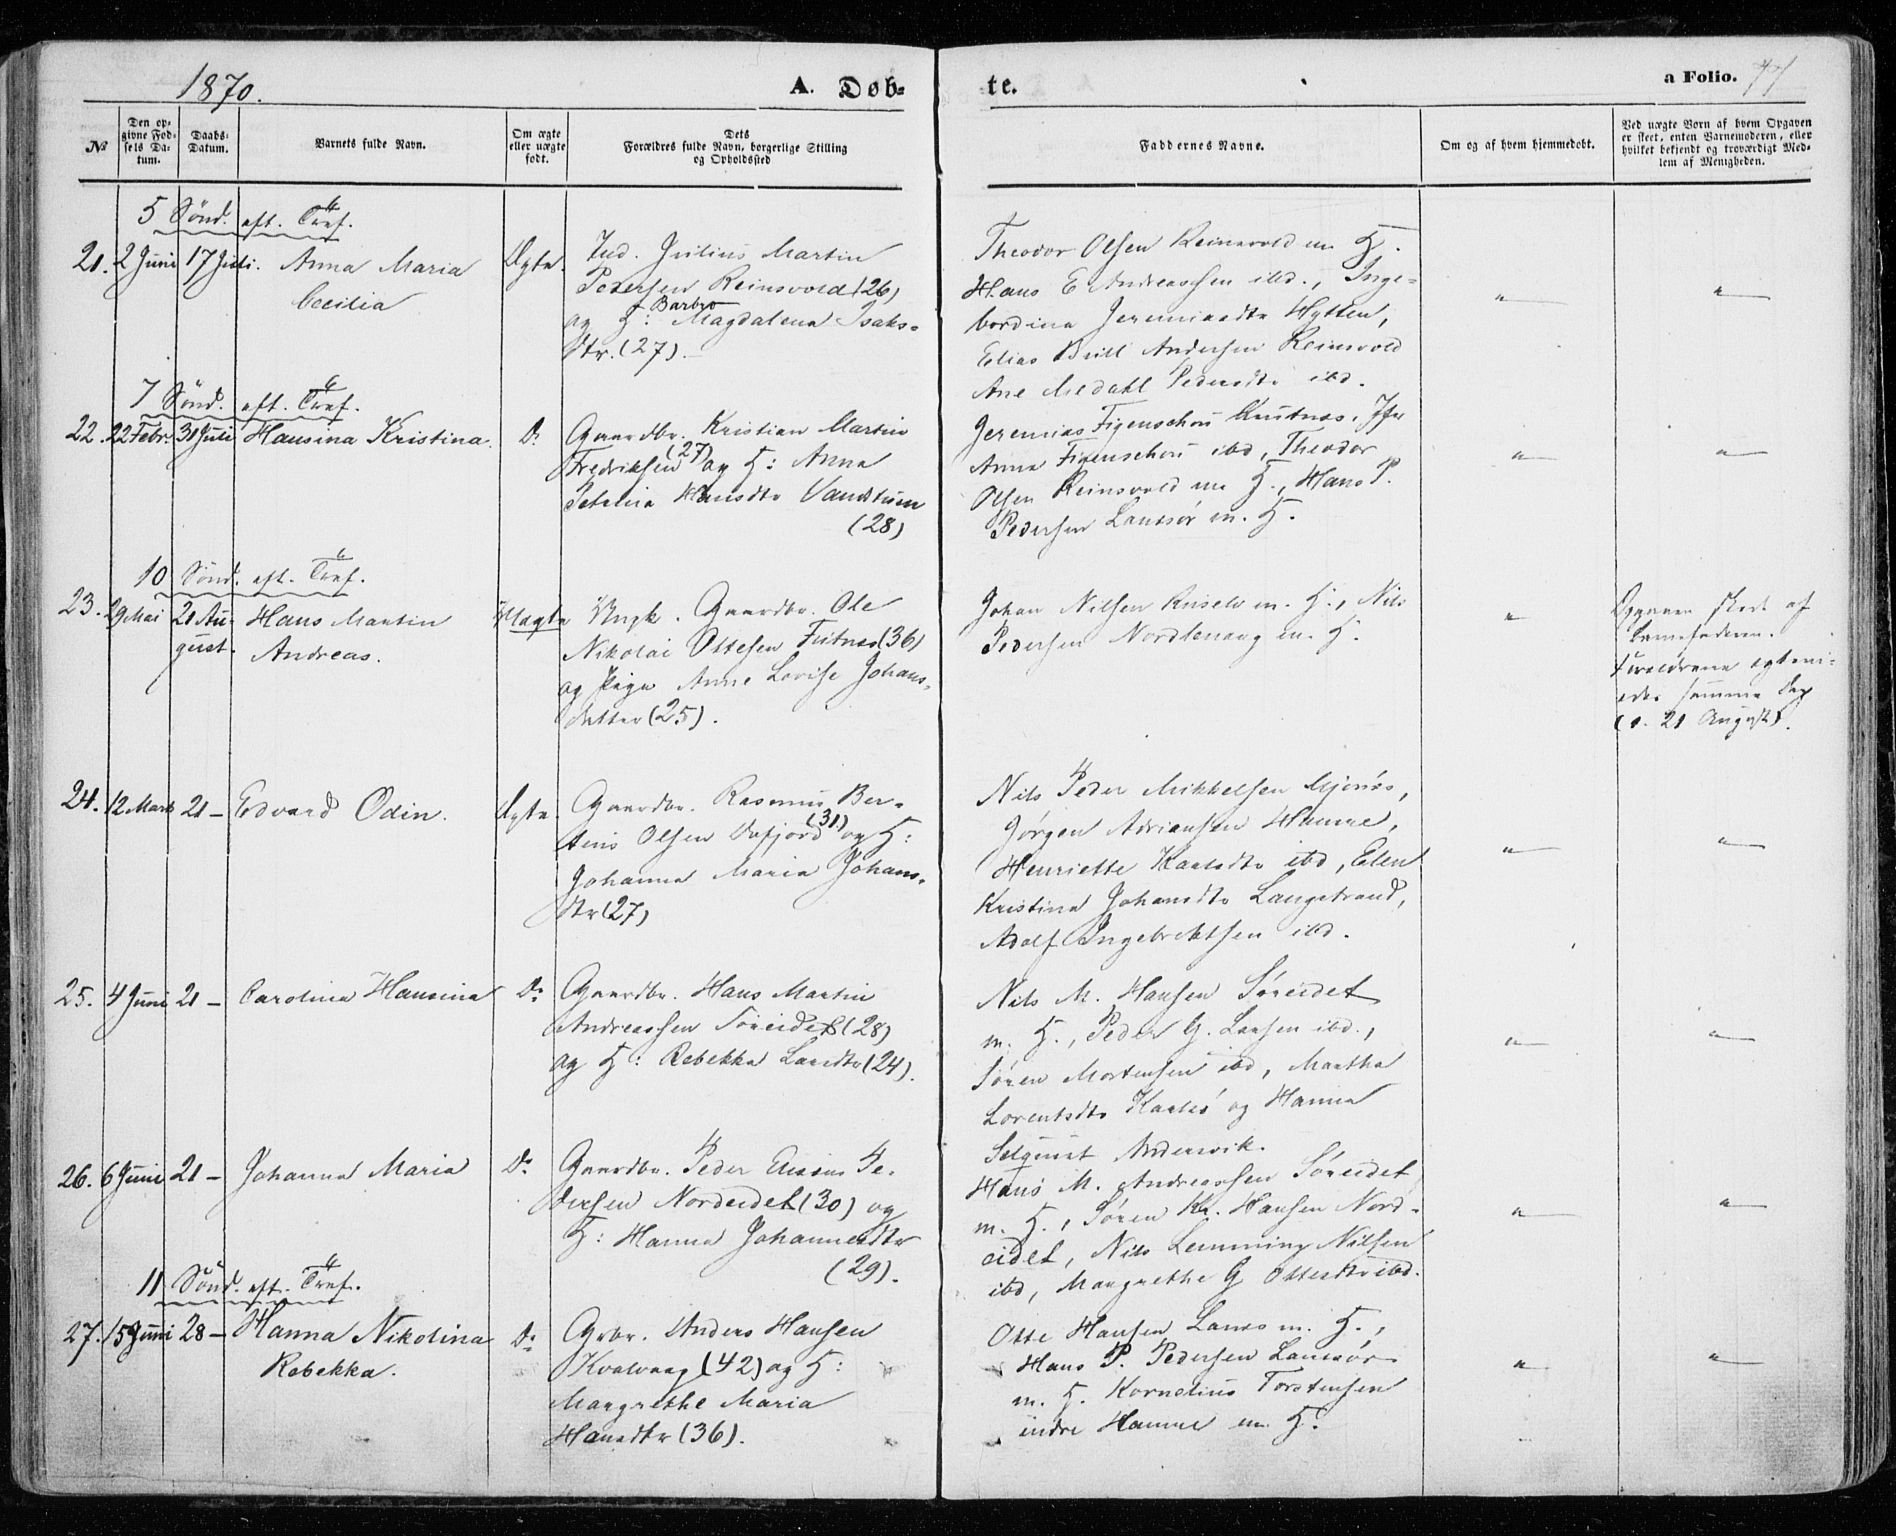 1870.
A. Døb-
te.
a Folio. 77
№
Den op-
givne Fød-
sels Da-
tum.
Daabs-
Datum.
Barnets fulde Navn.
Om ægte
eller uægte
født.
Dets
Forældres fulde Navn, borgerlige Stilling
og Opholdssted
Faddernes Navne.
Om og af hvem hjemmedøbt.
Ved uægte Børn af hvem Opgaven
er skeet, enten Barnemoderen, eller
hvilket bekjendt og troværdigt Med-
lem af Menigheden.
5 Sønd. eft. Tref.
21. 2 Juni 17 Juli. Anna Maria
Cecilia
Ægte.
Ind. Julius Martin
Pedersen Reinsvold (26)
og H: Barbro Magdalena Isaks-
dtr. (27).
Theodor Olsen Reinsvold m. H.
Hans E Andreassen ibd., Inge-
bordina Jeremiasdtr Hytten,
Elias Andersen Reinsvold
Ane Pedersdtr ibd.
7 Sønd. eft. Tref.
22. 22 Febr. 31 Juli Hansina Kristina.
Do
Gaardbr. Kristian Martin
Fredriksen (27) og H: Anna
Hansdtr
(28)
Jeremias Figenschou Kustnes, Jfr
Anna Figenschou ibd, Theodor
Olsen Reinsvold m H., Hans P.
Pedersen Lanesør m. H.
10 Sønd. eft. Tref.
23. 29 Mai 21 Au-
gust.
Hans Martin
Andreas.
Uægte
Ungk. Gaardbr. Ole
Nikolai Ottesen (36)
og Pige Anne Lovise Johans-
datter (25).
Johan Nilsen m. H., Nils
Pedersen Nordlenang m. H.
Opgaven skeet af
Barnefaderen.
Forældrene egtevi-
edes samme Dag
(d. 21 August).
24. 12 Marts 21 – Edvard Odin.
Ægte.
Gaardbr. Rasmus Ber-
tius Olsen (31) og H:
Johanna Maria Johans-
dtr (27)
Nils Peder Mikkelsen Mjønes,
Jørgen Adriansen Hamne,
Henriette Karlsdtr ibd, Elen
Kristina Johansdtr Langstrand,
Adolf Ingebrektsen ibd.
25. 4 Juni 21 – Carolina Hansina
Do
Gaardbr. Hans Martin
Andreassen Søreidet (28)
og H: Rebekka Larsdtr (24).
Nils M. Hansen Søreidet
m. H., Peder G. Larsen ibd.,
Søren Mortensen ibd, Martha
Lorentsdtr Karlsø og Hanna
Selquist
26. 6 Juni 21 – Johanna Maria
Do
Gaardbr. Peder Pe-
dersen Nordeidet (30) og
H: Hanna Johannesdtr
(29).
Hans M. Andreassen Søreidet
m. H., Søren Kr. Hansen Nord-
eidet, Nils Lemming Nilsen
ibd, Margrethe G Ottesdtr ibd.
11 Sønd. eft. Tref.
27. 15 Juni 28 – Hanna Nikolina
Rebekka.
Do
Grbr. Anders Hansen
Kvalvaag (42) og H:
Margrethe Maria
Hansdtr (36).
Otte Hansen Lanes m. H.,
Hans P. Pedersen Lanesør
m. H. Kornelius Torstensen
indre Hamne m. H.